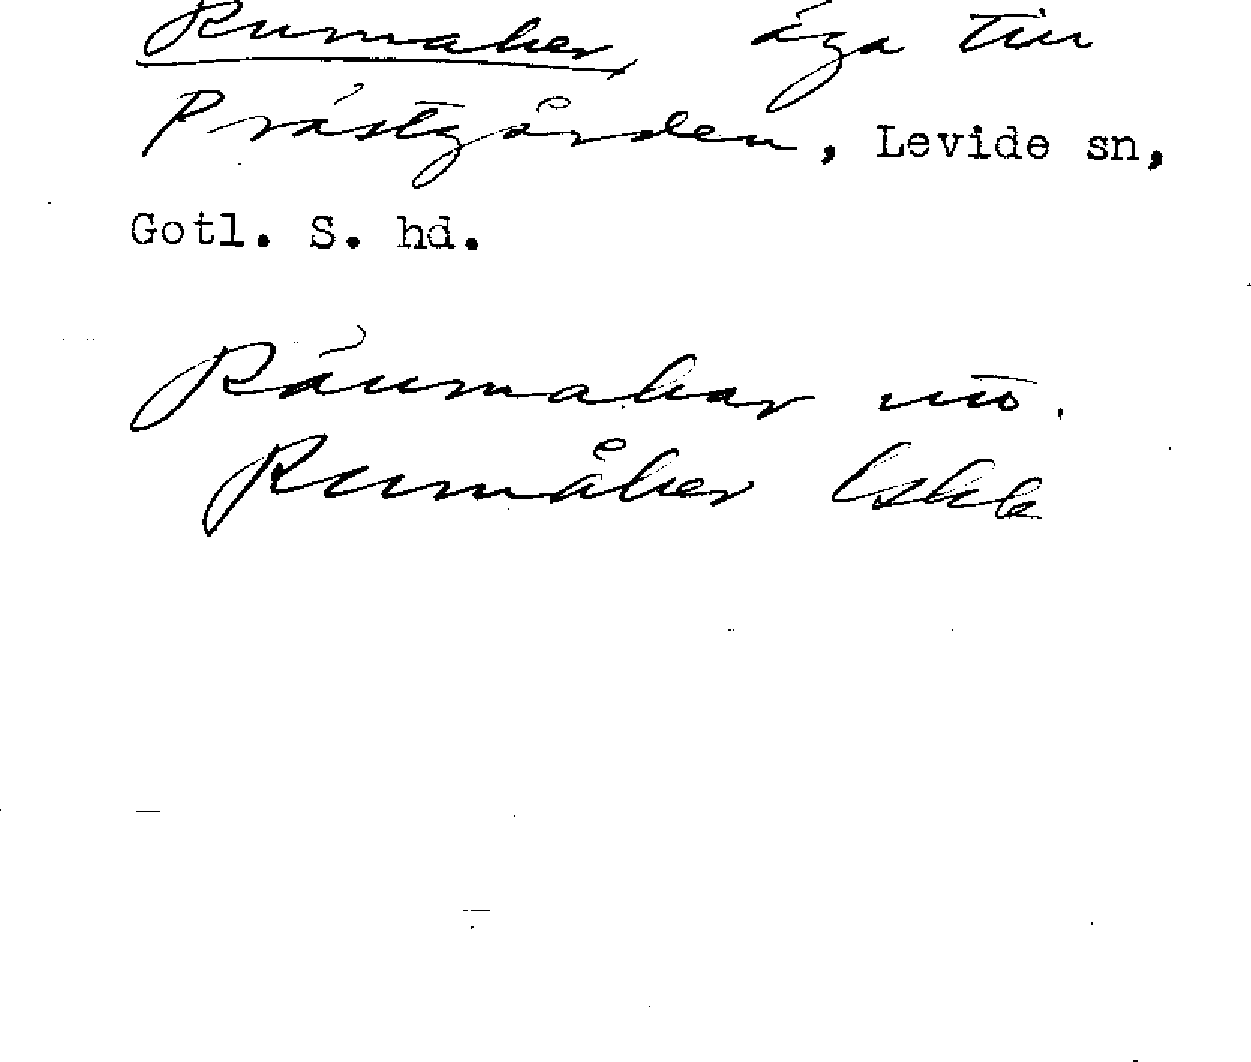 Rumaker äga till
Prästgården, Levide sn,
Gotl. S. hd.
Räumakar
Rumåker